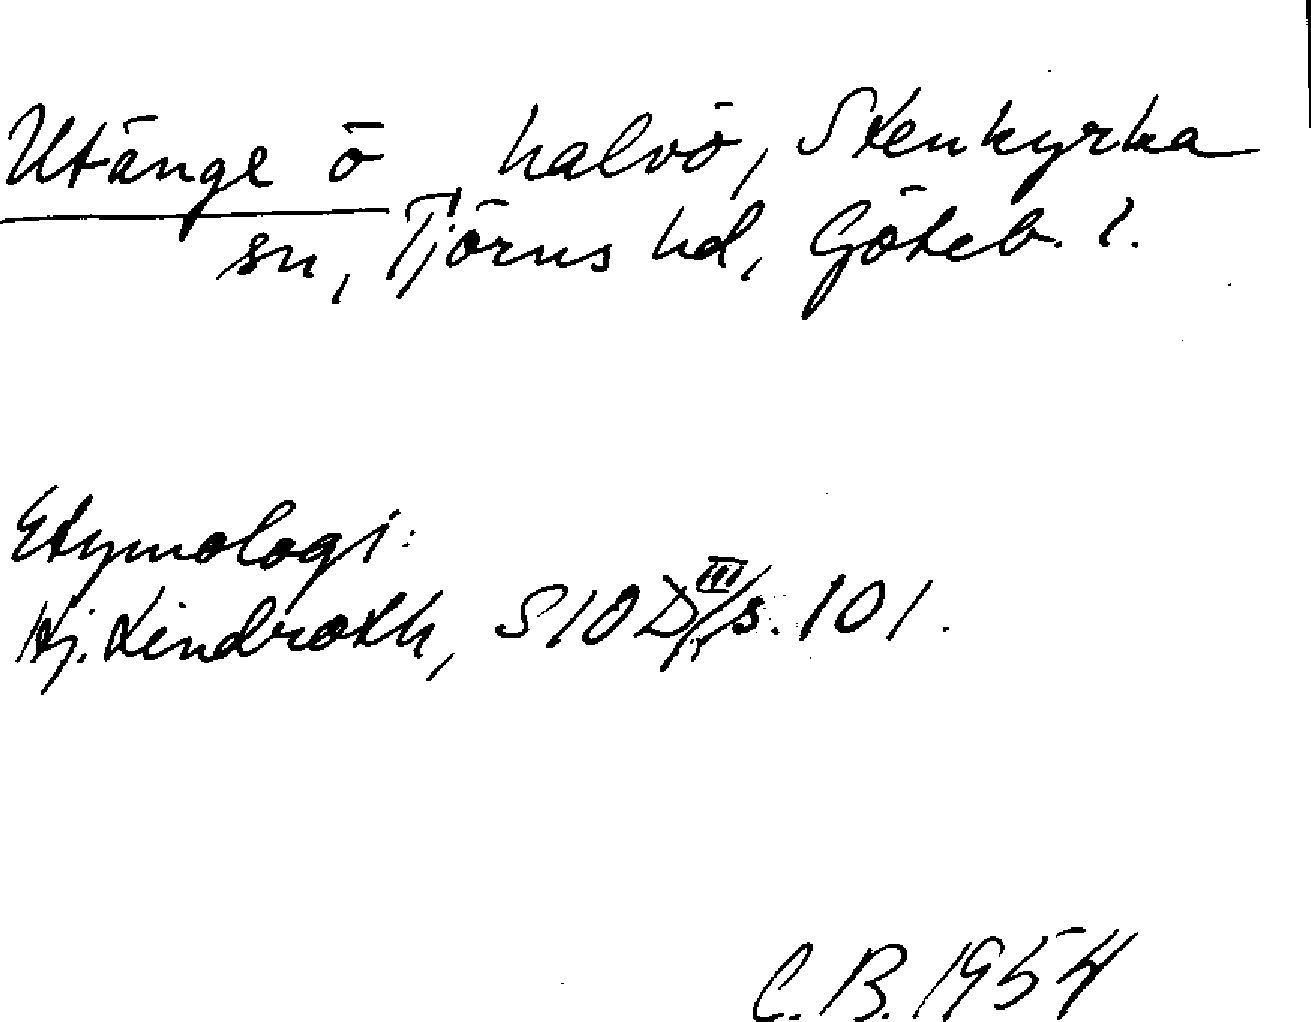 Utänge ö halvö, Stenkyrka
sn, Tjörns hd, Göteb. l.
Etymologi:
Hj. Lindroth, SIOD III s. 101.
C.B. 1954